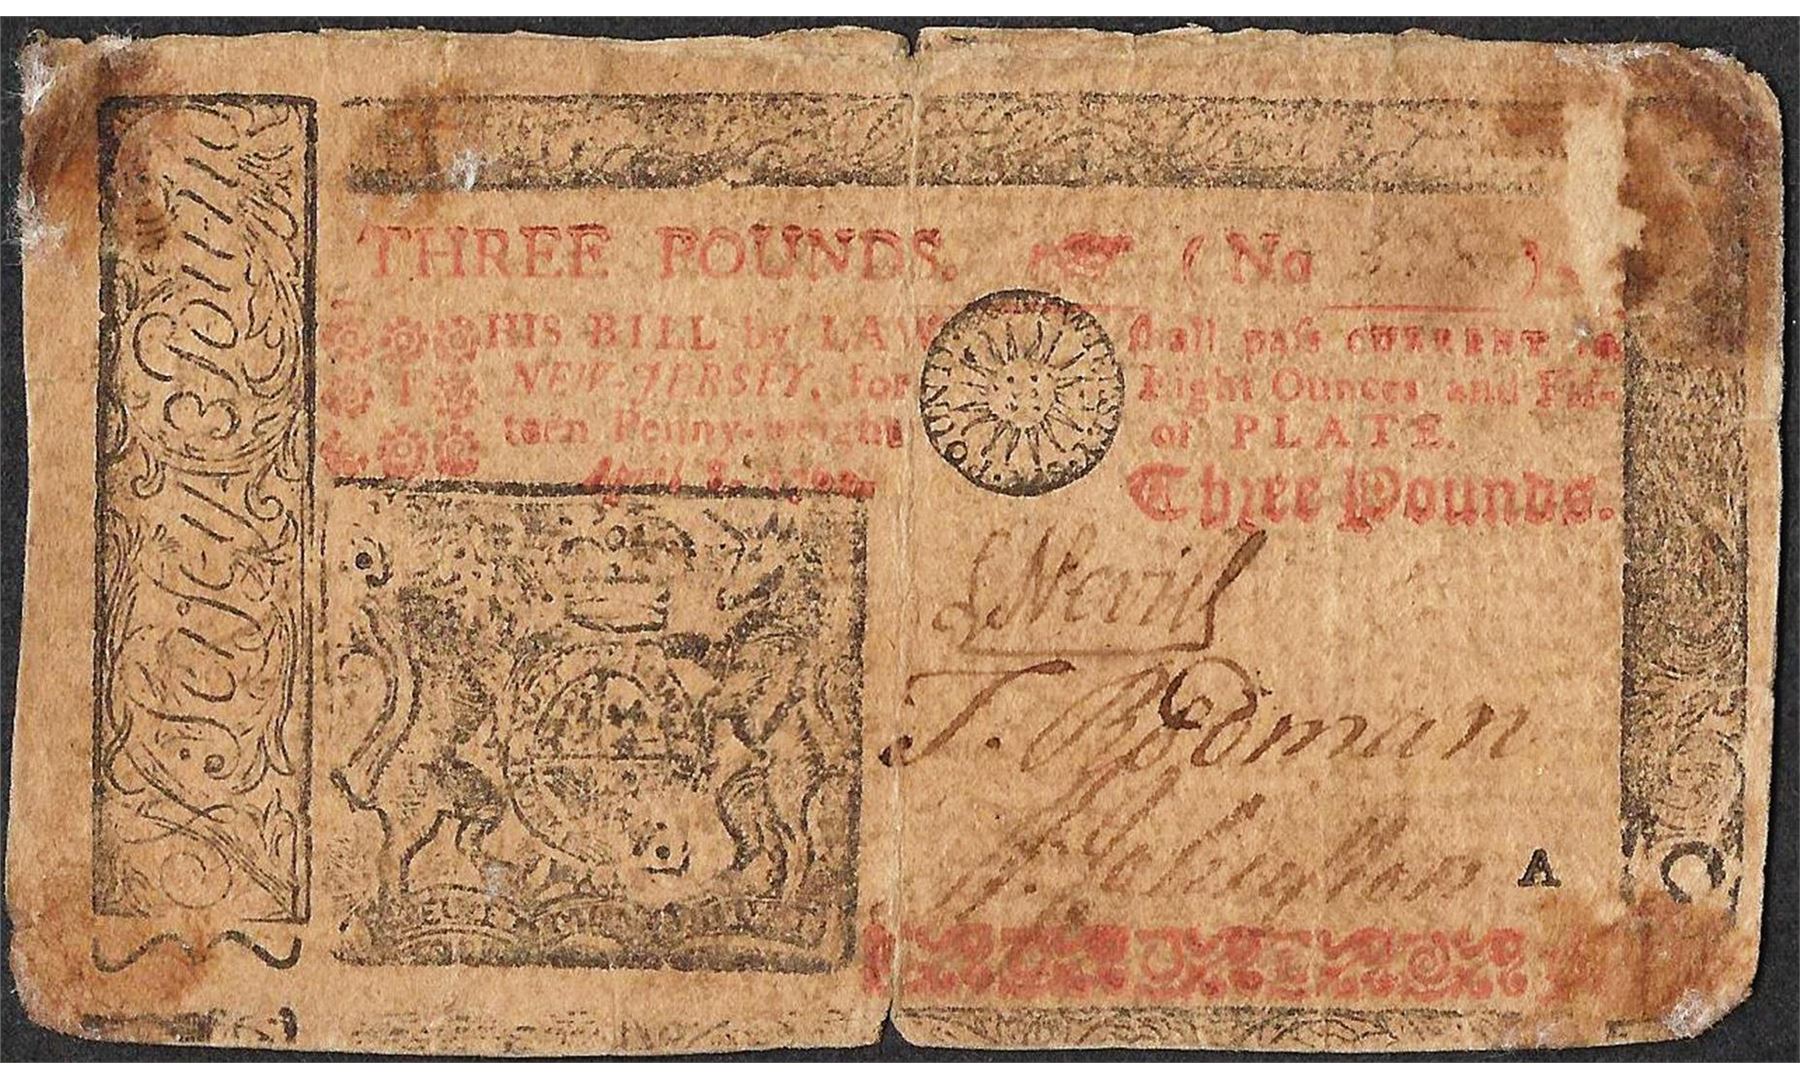 Jersey 3 Poun
THREE POUNDS. (No ).
THIS BILL by LAW shall paſs CURRENT in
NEW-JERSEY, for Eight Ounces and Fif-
teen Penny-weight of PLATE.
April 8. 1762.
Three Pounds.
S Nevill
J. Rodman
A
C